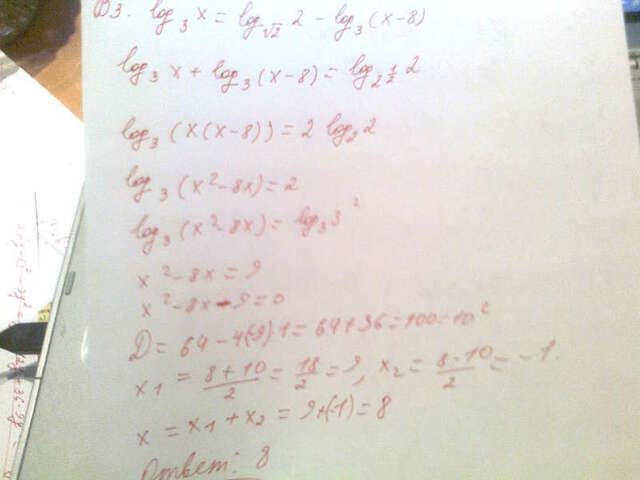 В3. log₃ x = log_√2 2 - log₃ (x-8)
log₃ x + log₃ (x-8) = log_2^½ 2
log₃ (x(x-8)) = 2 log₂ 2
log₃ (x²-8x) = 2
log₃ (x²-8x) = log₃ 3²
x²-8x = 9
x²-8x-9=0
D = 64-4(-9)·1 = 64+36=100=10²
x₁ = 8+10/2 = 18/2 = 9, x₂ = 8-10/2 = -1.
x = x₁ + x₂ = 9+(-1)=8
Ответ: 8